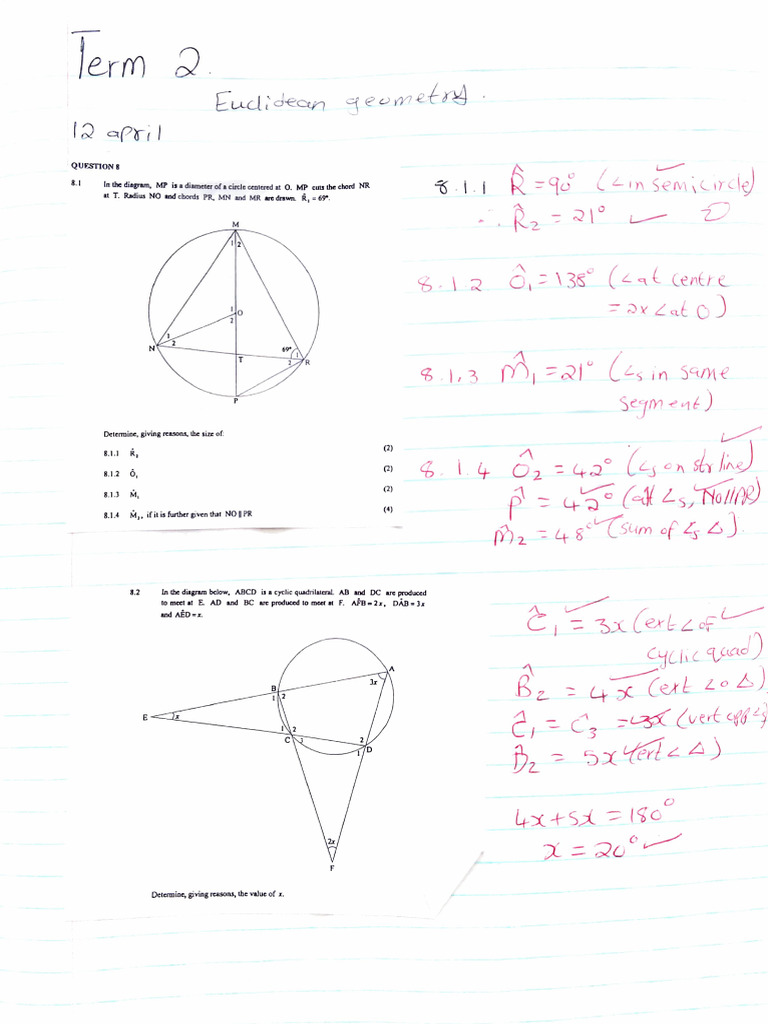 Term 2.
Euclidean geometry.
12 april
QUESTION 8
8.1 In the diagram, MP is a diameter of a circle centered at O. MP cuts the chord NR
at T. Radius NO and chords PR, MN and MR are drawn. R̂₁ = 69°.
M
1 2
1
O
2
1
N 2
T
69° 1
2 R
P
Determine, giving reasons, the size of:
8.1.1 R̂₂ (2)
8.1.2 Ô₁ (2)
8.1.3 M̂₁ (2)
8.1.4 M̂₂, if it is further given that NO ∥ PR (4)
8.1.1 R̂ = 90° (∠ in semicircle)
∴ R̂₂ = 21°
8.1.2 Ô₁ = 138° (∠ at centre
= 2x ∠ at O)
8.1.3 M̂₁ = 21° (∠s in same
segment)
8.1.4 Ô₂ = 42° (∠s on str line)
P̂ = 42° (alt ∠s, NO//PR)
M̂₂ = 48° (sum of ∠s Δ).
8.2 In the diagram below, ABCD is a cyclic quadrilateral. AB and DC are produced
to meet at E. AD and BC are produced to meet at F. AF̂B = 2x, DÂB = 3x
and AÊD = x.
A
3x
B
1 2
E x
1 2
C 3
2
1 D
2x
F
Determine, giving reasons, the value of x.
Ĉ₁ = 3x (ext ∠ of
cyclic quad)
B̂₂ = 4x (ext ∠ o Δ)
Ĉ₁ = Ĉ₃ = 3x (vert opp ∠s)
D̂₂ = 5x (ext ∠ Δ)
4x + 5x = 180°
x = 20°